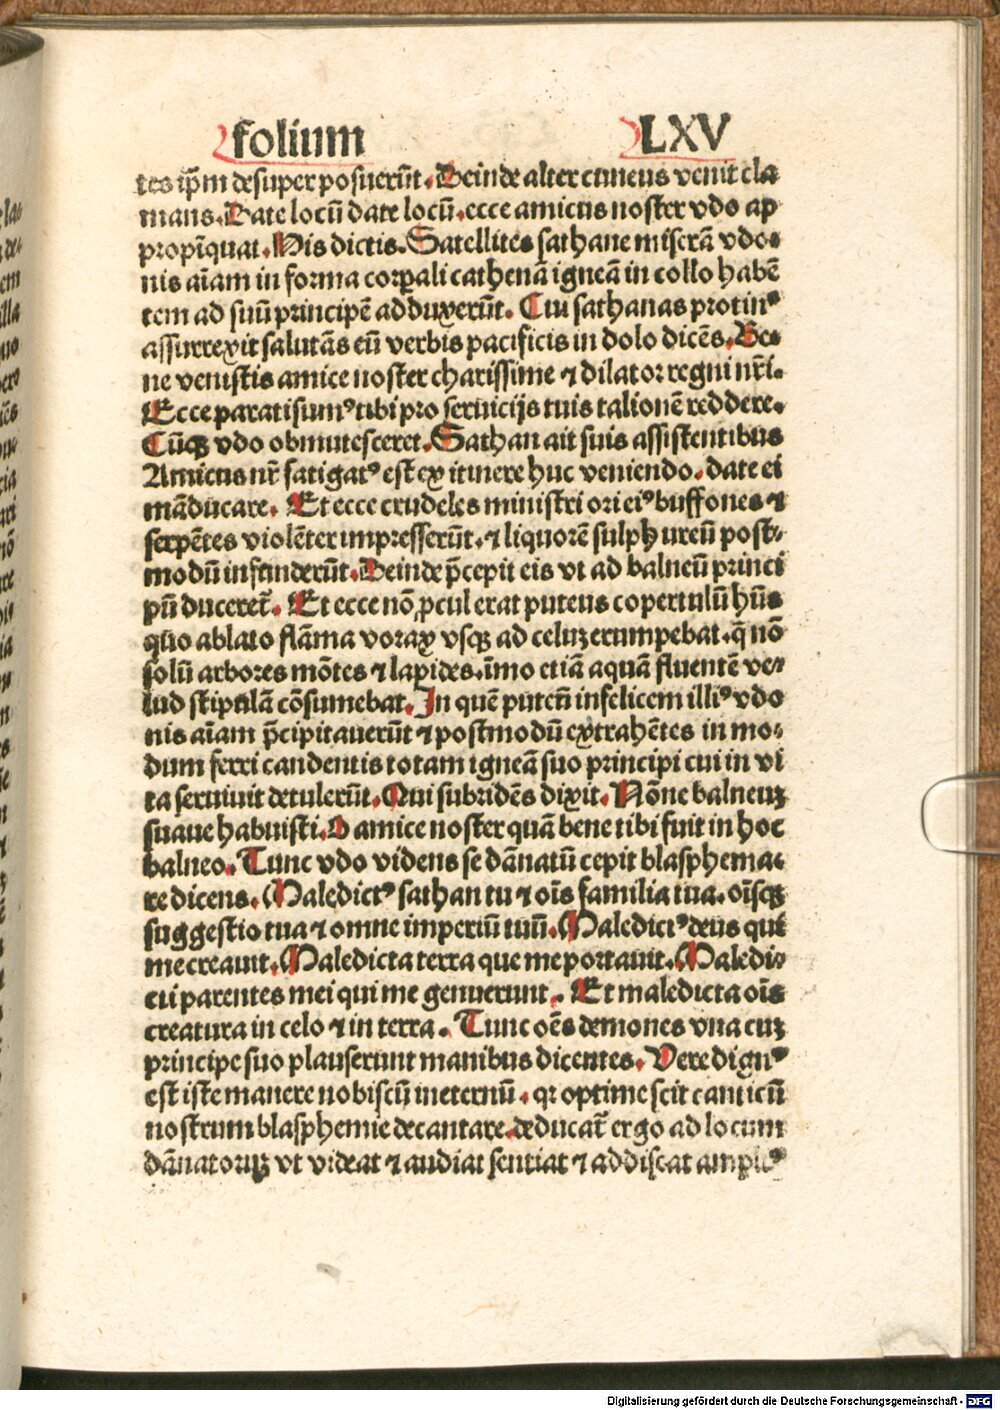 folium LXV
tes ip̄m desuper posuerūt. Deinde alter cuneus venit cla
mans. Date locū date locū. ecce amicus noster vdo ap
propīquat. His dictis. Satellites sathane miserā vdo⸗
nis aīam in forma corꝑali cathenā igneā in collo habē
tem ad suū principē adduxerūt. Cui sathanas protinꝰ
assurrexit salutās eū verbis pacificis in dolo dicēs. Be⸗
ne venistis amice noster charissime ⁊ dilator regni nr̄i.
Ecce parati sumꝰ tibi pro seruicijs tuis talionē reddere.
Cūqꝫ vdo obmutesceret. Sathan ait suis assistentibus
Amicus nr̄ fatigatꝰ est ex itinere huc veniendo. date ei
māducare. Et ecce crudeles ministri ori eiꝰ buffones ⁊
serpētes violēter impresserūt. ⁊ liquorē sulphureū post⸗
modū infunderūt. Deinde p̄cepit eis vt ad balneū princi
pū duceret̄. Et ecce nō ꝓcul erat puteus copertulū hūs
quo ablato flāma vorax vsqꝫ ad celuꝫ erumpebat. q̄ nō
solū arbores mōtes ⁊ lapides. īmo etiā aquā fluentē ve⸗
lud stipulā cōsumebat. In quē puteū infelicem illiꝰ vdo
nis aīam p̄cipitauerūt ⁊ postmodū extrahētes in mo⸗
dum ferri candentis totam igneā suo principi cui in vi
ta seruiuit detulerūt. Qui subridēs dixit. Nōne balneuꝫ
suaue habuisti. O amice noster quā bene tibi fuit in hoc
balneo. Tunc vdo videns se dānatū cepit blasphema⸗
re dicens. Maledictꝰ sathan tu ⁊ oīs familia tua. oīsqꝫ
suggestio tua ⁊ omne imperiū tuū. Maledictꝰ deus qui
me creauit. Maledicta terra que me portauit. Maledi⸗
cti parentes mei qui me genuerunt. Et maledicta oīs
creatura in celo ⁊ in terra. Tunc oēs demones vna cuꝫ
principe suo plauserunt manibus dicentes. Vere dignꝰ
est iste manere nobiscū ineternū. qꝛ optime scit canticū
nostrum blasphemie decantare. deducat̄ ergo ad locum
dānatoruꝫ vt videat ⁊ audiat sentiat ⁊ addiscat ampliꝰ
Digitalisierung gefördert durch die Deutsche Forschungsgemeinschaft - DFG